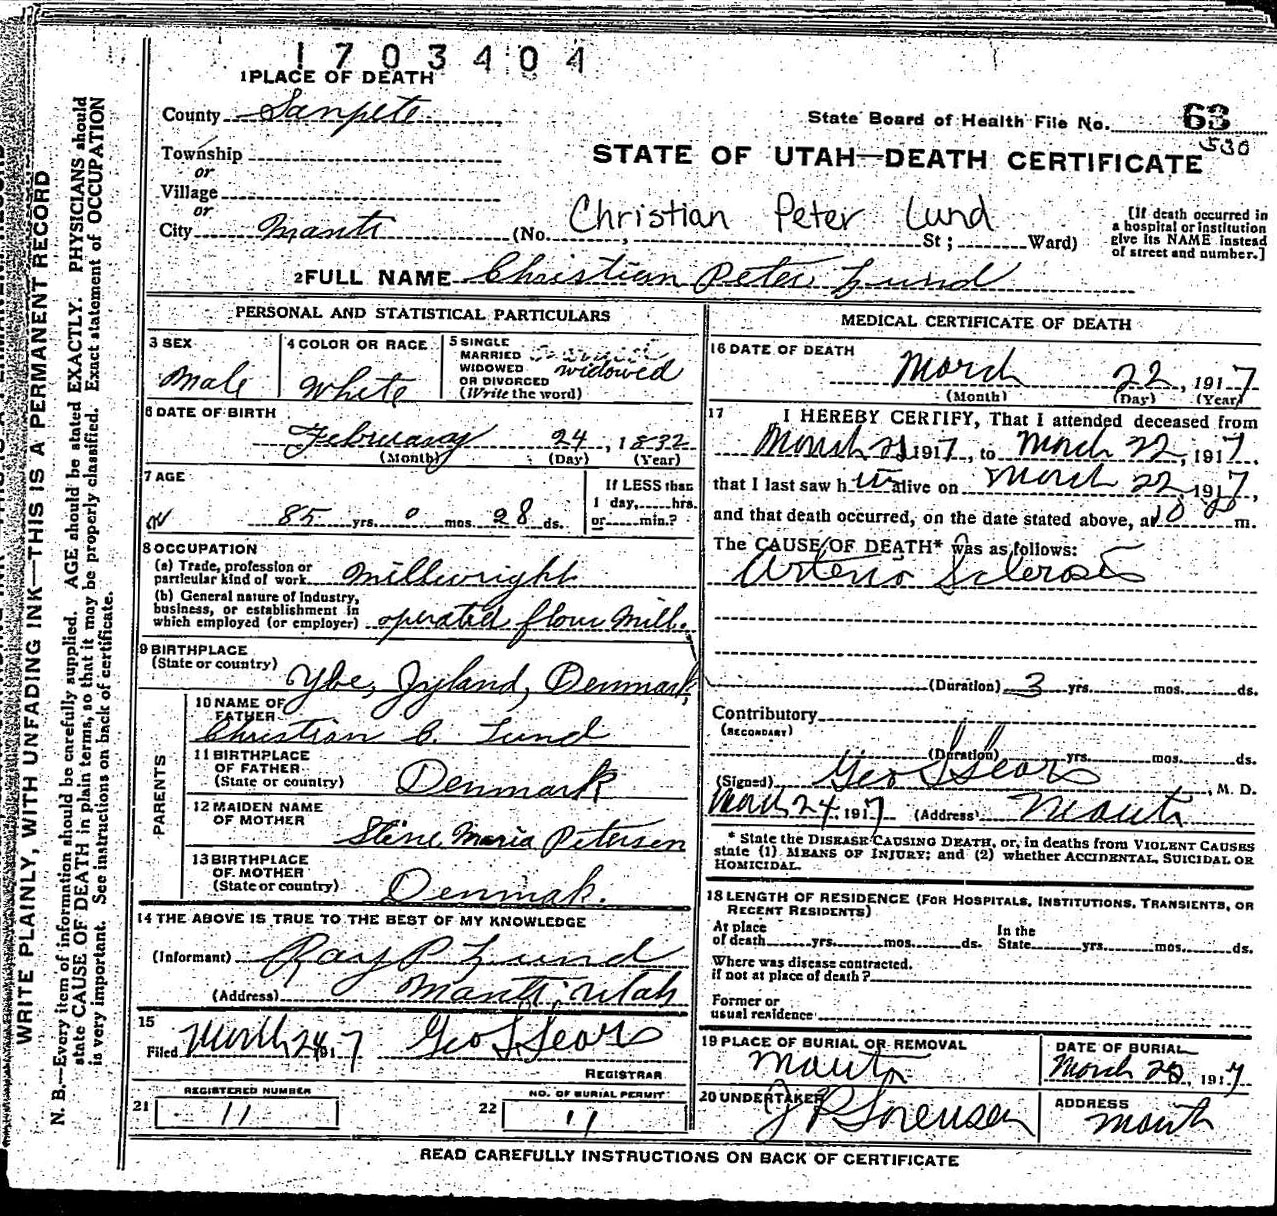 1703404
1 PLACE OF DEATH
County Sanpete
State Board of Health File No. 63
530
Township
or
STATE OF UTAH—DEATH CERTIFICATE
Village
or
Christian Peter Lund
City Manti (No. , St ; Ward)
[If death occurred in
a hospital or institution
give its NAME instead
of street and number.]
2 FULL NAME Christian Peter Lund
PERSONAL AND STATISTICAL PARTICULARS
3 SEX
Male
4 COLOR OR RACE
White
5 SINGLE
MARRIED
WIDOWED widowed
OR DIVORCED
(Write the word)
6 DATE OF BIRTH
February 24, 1832
(Month) (Day) (Year)
7 AGE
85 yrs. 0 mos. 28 ds.
If LESS than
1 day, hrs.
or min.?
8 OCCUPATION
(a) Trade, profession or
particular kind of work Millwright
(b) General nature of Industry,
business, or establishment in
which employed (or employer) operated flour Mill.
9 BIRTHPLACE
(State or country) Ybe, Jyland, Denmark
PARENTS
10 NAME OF
FATHER
Christian C. Lund
11 BIRTHPLACE
OF FATHER
(State or country) Denmark
12 MAIDEN NAME
OF MOTHER
Stine Maria Petersen
13 BIRTHPLACE
OF MOTHER
(State or country) Denmak.
14 THE ABOVE IS TRUE TO THE BEST OF MY KNOWLEDGE
(Informant) Ray P Lund
(Address) Manti, Utah
15
Filed March 24 1917 Geo L Sears
REGISTRAR
REGISTERED NUMBER
21 11
NO. OF BURIAL PERMIT
22 11
MEDICAL CERTIFICATE OF DEATH
16 DATE OF DEATH
March 22, 1917
(Month) (Day) (Year)
17 I HEREBY CERTIFY, That I attended deceased from
March 21 1917, to March 22, 1917,
that I last saw h im alive on March 22, 1917,
and that death occurred, on the date stated above, at 10 m.
The CAUSE OF DEATH* was as follows:
Arterio Sclerosis
(Duration) 3 yrs. mos. ds.
Contributory
(SECONDARY)
(Duration) yrs. mos. ds.
(Signed) Geo L Sears, M. D.
March 24, 1917 (Address) Manti
* State the DISEASE CAUSING DEATH, or, in deaths from VIOLENT CAUSES
state (1) MEANS OF INJURY; and (2) whether ACCIDENTAL, SUICIDAL OR
HOMICIDAL.
18 LENGTH OF RESIDENCE (FOR HOSPITALS, INSTITUTIONS, TRANSIENTS, OR
RECENT RESIDENTS)
At place In the
of death yrs. mos. ds. State yrs. mos. ds.
Where was disease contracted,
if not at place of death?
Former or
usual residence
19 PLACE OF BURIAL OR REMOVAL
Manti
DATE OF BURIAL
March 25, 1917
20 UNDERTAKER
J P Sorensen
ADDRESS
Manti
READ CAREFULLY INSTRUCTIONS ON BACK OF CERTIFICATE
WRITE PLAINLY, WITH UNFADING INK—THIS IS A PERMANENT RECORD
N. B.—Every item of information should be carefully supplied. AGE should be stated EXACTLY. PHYSICIANS should
state CAUSE OF DEATH in plain terms, so that it may be properly classified. Exact statement of OCCUPATION
is very important. See instructions on back of certificate.